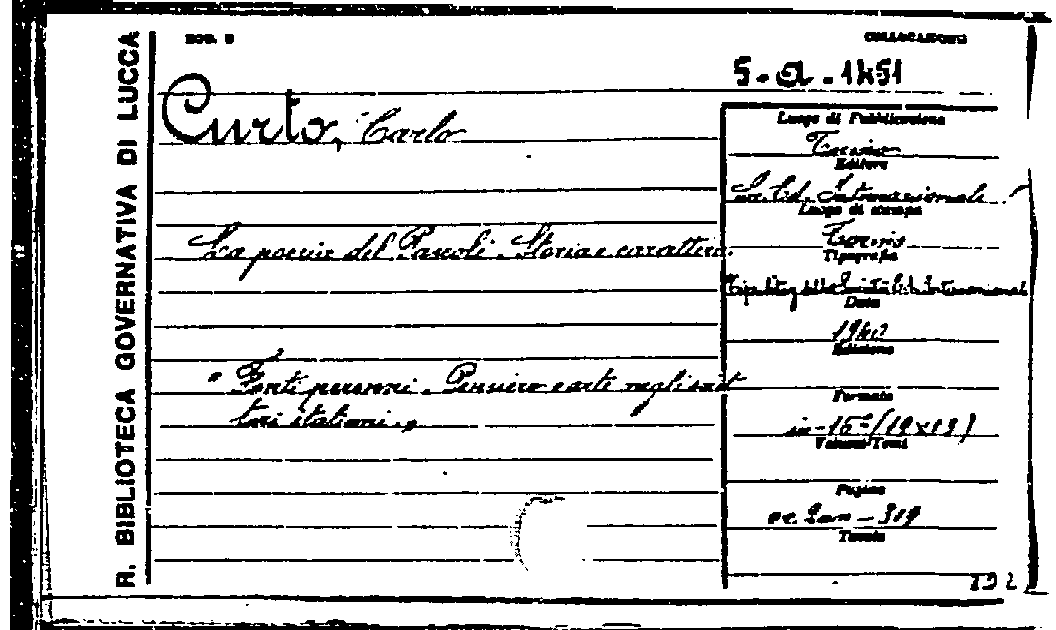 R. BIBLIOTECA GOVERNATIVA DI LUCCA
MOD. B
COLLOCAZIONE
5-a-1451
Curto, Carlo
La poesia del Pascoli. Storia e carattere.
" Fonti pensieri. Pensiero e arte negli scrit
tori italiani. „
Luogo di Pubblicazione
Torino
Editore
Soc. Ed. Internazionale
Luogo di stampa
Torino
Tipografia
Tipolitog. della Società Ed. Internazionale
Data
1940
Edizione
Formato
in-16° (19x13)
Volumi/Tomi
Pagine
319
Tavole
192